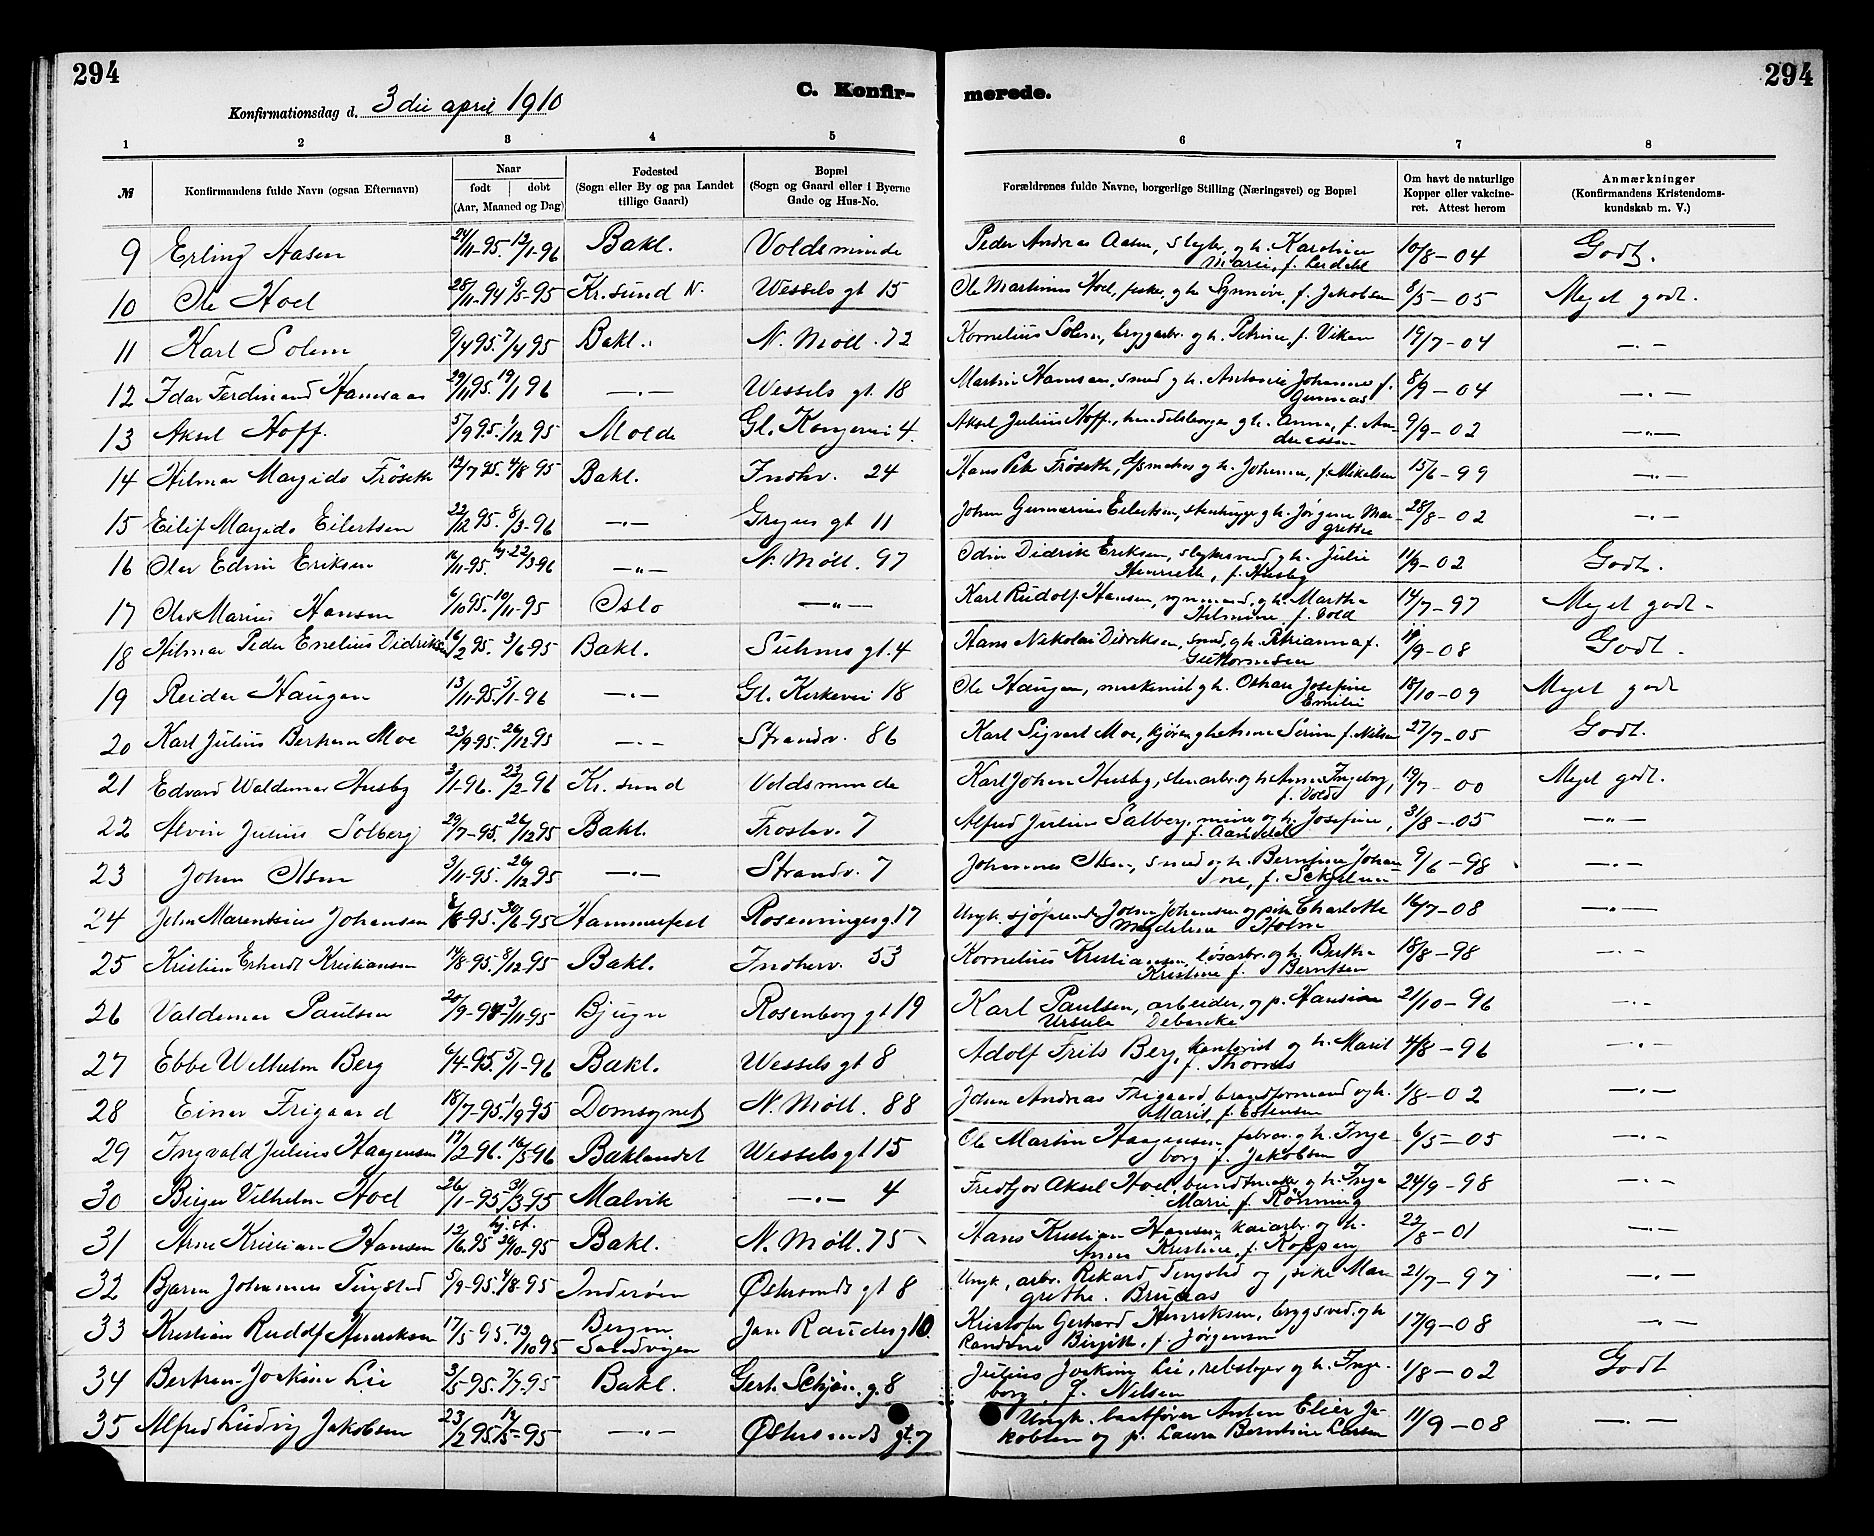 294
294
Konfirmationsdag d. 3die april 1910
C. Konfir- merede.
1 2 3 4 5 6 7 8
№ Konfirmandens fulde Navn (ogsaa Efternavn) Naar født døbt (Aar, Maaned og Dag) Fødested (Sogn eller By og paa Landet tillige Gaard) Bopæl (Sogn og Gaard eller i Byerne Gade og Hus-No. Forældrenes fulde Navne, borgerlige Stilling (Næringsvei) og Bopæl Om havt de naturlige Kopper eller vakcineret. Attest herom Anmærkninger (Konfirmandens Kristendomskundskab m. V.)
9 Erling Aasen 24/11-95. 12/1-96 Bakl. Voldsminde Peder Andreas Aasen, slagter, g h. Karoline 10/8-04 Godt.
Marie, f. Lerdahl
10 Ole Hoel 28/11-94 3/5-95 Kr.sund N. Wessels gt 15 Ole Martinus Hoel, fisker, g h. Synnøve, f. Jakobsen 8/5-05 Meget godt.
11 Karl Solem 9/4 95. 7/4 95 Bakl. N. Møll. 72 Kornelius Solem, bryggarb. og h. Petrine, f. Viken 19/7-04 -"-
12 Idar Ferdinand Hansaas 29/11 95. 19/1 96 -"- Wessels gt. 18 Martin Hansen, smed g h. Antonie Johanne f. 8/9-04 -"-
Gunnas
13 Aksel Hoff. 5/9 95. 1/12 95 Molde Gl. Kongevei 4. Aksel Julius Hoff, handelsborger g h. Anna, f. An- 9/9-02 -"-
dreassen
14 Hilmar Magids Frøseth 12/7 95. 4/8 95 Bakl. Indhv. 24 Hans Petr Frøseth, g h. Johanne, f. Mikalsen 15/6-99 -"-
15 Eilif Magids Eilertsen 22/12 95. 8/3-96 -"- Gregus gt 11 Johan Gunnerius Eilertsen, stenhugger g h. Jørgine Mar- 28/8-02 -"-
grethe
16 Olav Edvin Eriksen 16/11-95. hj. 22/3-96 -"- N. Møll. 97 Odin Didrik Eriksen, g h. Julie 11/9-02 Godt.
Henriette, f. Husby
17 Olav Marius Hansen 6/10 95. 10/11-95 Oslo -"- Karl Rudolf Hansen, g. h. Martha 14/7-97 Meget godt-
Hilmine, f. Vold
18 Hilmar Peder Enelius Didriksen 16/2 95. 3/6-95 Bakl. Suhms gt. 4 Hans Nikolai Didriksen, smed, g h. Petrianna f. 19/9-08 Godt.
Guttormsen
19 Reidar Haugen 13/11-95 5/1-96 -"- Gl. Kirkevei 18 Ole Haugen, maskinist g h. Oskara Josefine 18/10-09 Meget godt
Emilie
20 Karl Julius Bertram Moe 23/9 95. 26/12 95 -"- Strandv. 86 Karl Sigvart Moe, kjører, g h Anna Serine f. Nilsen 27/7-05 Godt.
21 Edvard Waldemar Husby 3/1-96. 23/2-96 Kr. sund Voldsminde Karl Johan Husby, stenarb. og h Anne Ingeborg, 19/7-00 Meget godt.
f. Vold
22 Alvin Julius Solberg 29/7-95. 26/12 95 Bakl. Frostav. 7 Alfred Julius Salberg, murer og h. Josefine, 31/8-05 -"-
f. Aardahl
23 Johan Olsen 3/11-95. 26/12 95 -"- Strandv. 7 Johannes Olsen, smed og h. Berntine Johan- 9/6-98 -"-
ne, f. Schjelme
24 John Marentsius Johansen 2/6-95. 30/6-95 Hammerfest Rosenvinges g. 17 Ungk. sjøfarende John Johansen og pike Charlotte 16/7-08 -"-
Magdelene Holm
25 Kristian Erhardt Kristiansen 14/8-95. 8/12-95 Bakl. Indherv. 53 Kornelius Kristiansen, løsarb. og h. Bertha 18/8-98 -"-
Kristine f. Berntsen
26 Valdemar Paulsen 20/9-94 3/11-95 Bjugn Rosenborg gt 19 Karl Paulsen, arbeider, og p. Hansine 21/10-96 -"-
Ursula
27 Ebbe Wilhelm Berg 6/4-95. 5/1-96 Bakl. Wessels gt 8 Adolf Frits Berg, kontorist og h. Marit 4/8-96 -"-
f. Thornes
28 Einar Frigaard 18/7-95. 1/9-95 Domsognet N. Møll. 88 Johan Andreas Frigaard, brandformand og h. 1/8-02 -"-
Marit, f. Estensen
29 Ingvald Julius Haagensen 17/2 96. 16/5-96 Baklandet Wessels gt 15 Ole Martin Haagensen, fabrar. g h. Inge- 6/5-05 -"-
borg f. Jakobsen
30 Birger Vilhelm Hoel 26/1-95. 31/3-95 Malvik -"- 4 Fredtjov Aksel Hoel, buntmaker g h. Inga 24/9-98 -"-
Marie f. Rønning
31 Arne Kristian Hansen 12/6 95 hj. st. 20/10-95 Bakl. N. Møll. 75 Hans Kristian Hansen, kaiarb. og h. 22/8-01 -"-
Anna Kristine, f. Koppen
32 Bjarne Johannes Tingstad 5/9-95. 4/8-95 Inderøen Østersunds gt 8 Ungk, arbr. Rikard Tingstad og pike Mar- 21/7-97 -"-
grethe Bruaas
33 Kristian Rudolf Henriksen 17/5-95. 13/10 95 Bergen Jan Raudes g 10 Kristofer Gerhard Henriksen, brygsved. og h 17/9-08 -"-
Sandvigen Randine Birgitte, f. Jørgensen
34 Bertran Joakim Lie 3/5-95. 7/7-95 Bakl. Gert. Schjøn. g. 8 Julius Joakim Lie, rebslager og h. Inge- 1/8-02 Godt
borg f. Nilsen
35 Alfred Ludvig Jakobsen 23/2 95 12/5-95 -"- Østersunds gt. 7 Ungk. baatfører Anton Elier Ja- 11/9-08 -"-
kobsen og p. Laura Berntine Larsen